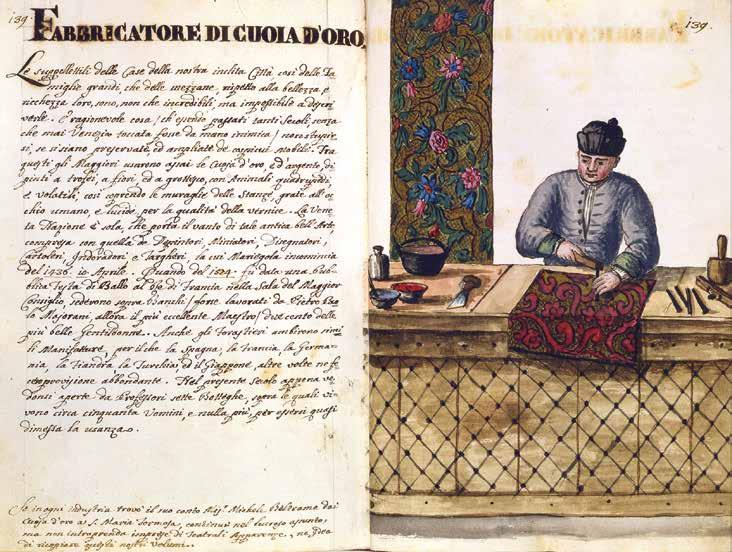 139.
FABBRICATORE DI CUOIA D'ORO.
Le suppellettili delle Case della nostra inclita Città così delle Fa
miglie grandi, che delle mezzane, rispetto alla bellezza, e
ricchezza loro, sono, non che incredibili ma impossibile a descri
verle. È ragionevole cosa, ch'essendo passati tanti Secoli senza
che mai Venezia toccata fosse da mano inimica, non stupir
si, se si siano preservate, ed ampliate de cospicui Mobili. Tra
questi gli Maggiori usareno assai le Cuoja d'oro, e d'argento di
pinti a trofei, a fiori, ed a grottesco, con Animali quadrupedi
e volatili, così coprendo le muraglie delle Stanze, grate all'oc
chio umano e lucide per la qualità della vernice. La Vene
ta Nazione è sola, che porta il vanto di tale antica bell'Arte
compresa con quella de Depentori, Miniatori, Disegnatori,
Cartoleri, Indoradori, e Targheri, la cui Mariegola incomincia
del 1436. io Aprile. Quando del 1574. fu data una
Festa di Ballo al Re di Francia nella Sala del Maggior
Consiglio, sederono sopra Banchi, forse lavorati da Pietro
Majorani, allora il più eccellente Maestro, ducento delle
più belle Gentildonne. Anche gli Forastieri ambirono simi
li Manifatture, per il che la Spagna, la Francia, la Germa
nia, la Fiandra, la Turchia, ed il Giappone, altre volte ne fe
cero provisione abbondante. Nel presente Secolo appena ve
donsi aperte da Professori sette Botteghe, sopra le quali vi
vono circa cinquanta Uomini, e nulla più, per essersi quasi
dimessa la usanza.
Se in ogni industria trovò il suo conto Michele Baldrame dai
Cuoja d'oro a S. Maria Formosa, continui nel lucroso assunto,
ma non intraprenda imprese di Teatrali Apparenze, ne, idea
di ricopiare questi nostri Volumi.
139.